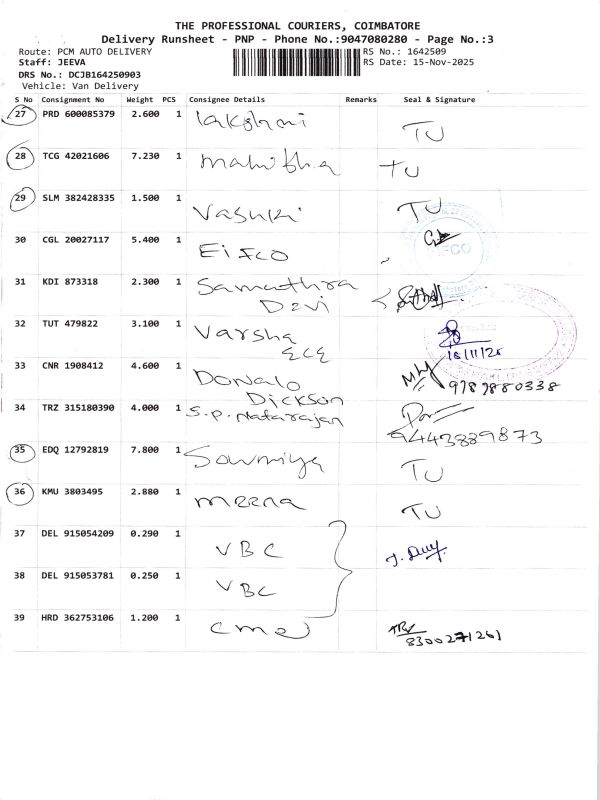 THE PROFESSIONAL COURIERS, COIMBATORE
Delivery Runsheet - PNP - Phone No.:9047080280 - Page No.:3
Route: PCM AUTO DELIVERY RS No.: 1642509
Staff: JEEVA RS Date: 15-Nov-2025
DRS No.: DCJB164250903
Vehicle: Van Delivery
S No Consignment No Weight PCS Consignee Details Remarks Seal & Signature
27 PRD 600085379 2.600 1 Lakshmi TU
28 TCG 42021606 7.230 1 Mahitha TU
29 SLM 382428335 1.500 1 Vasuki TU
30 CGL 20027117 5.400 1 EIFCO
31 KDI 873318 2.300 1 Samuthra
Devi
32 TUT 479822 3.100 1 Varsha
ECE
33 CNR 1908412 4.600 1 Donald 9789880338
Dickson
34 TRZ 315180390 4.000 1 S.P. Natarajan
9443889873
35 EDQ 12792819 7.800 1 Sowmiya TU
36 KMU 3803495 2.880 1 Meena TU
37 DEL 915054209 0.290 1 VBC
38 DEL 915053781 0.250 1 VBC
39 HRD 362753106 1.200 1 CME
8300271261